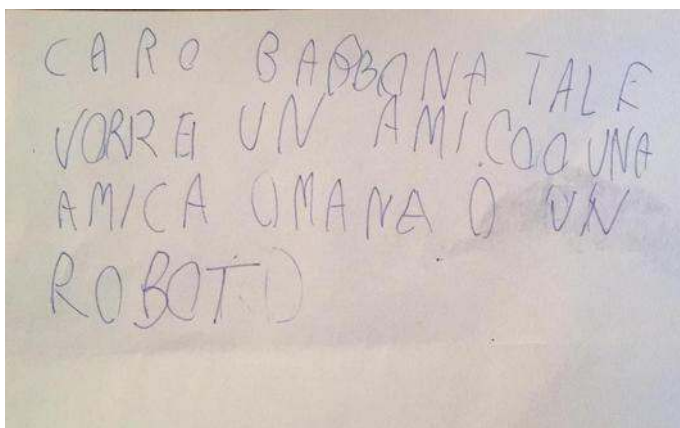 CARO BABBONATALE
VORREI UN AMICOOUNA
AMICA UMANA O UN
ROBOTO